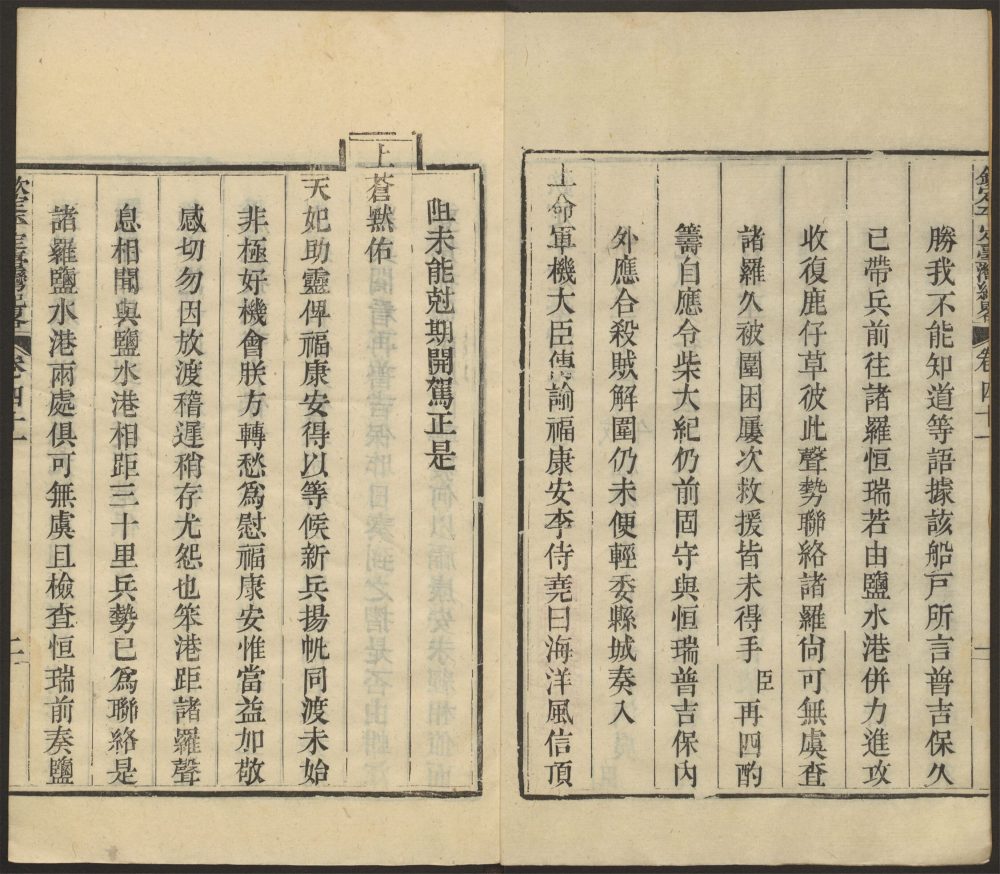 勝我不能知道等語據該船戸所言普吉保久
已帶兵前往諸羅恒瑞若由鹽水港併力進攻
收復鹿仔草彼此聲勢聯絡諸羅尙可無虞查
諸羅久被圍困屢次救援皆未得手臣再四酌
籌自應令柴大紀仍前固守與恒瑞普吉保内
外應合殺賊解圍仍未便輕委縣城奏入
上命軍機大臣傳諭福康安李侍堯曰海洋風信頂
阻未能尅期開駕正是
上蒼默佑
天妃助靈俾福康安得以等候新兵揚帆同渡未始
非極好機會朕方轉愁爲慰福康安惟當益加敬
感切勿因放渡稽遲稍存尤怨也笨港距諸羅聲
息相聞與鹽水港相距三十里兵勢已爲聯絡是
諸羅鹽水港兩處俱可無虞且檢查恒瑞前奏鹽
欽定平定臺灣紀略 卷四十一 二